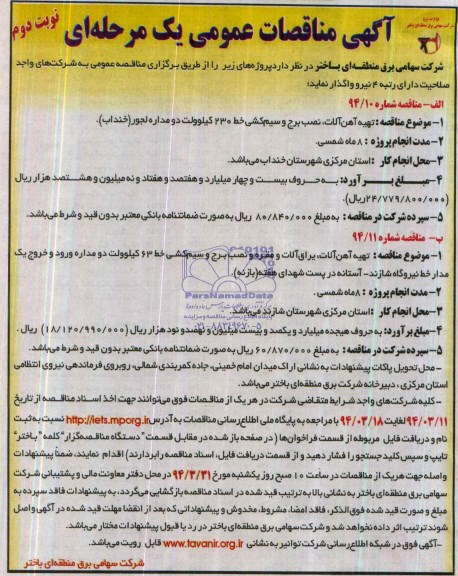 نوبت دوم
وزارت نیرو
شرکت سهامی برق منطقه‌ای باختر
آگهی مناقصات عمومی یک مرحله‌ای
شرکت سهامی برق منطقه‌ای باختر در نظر دارد پروژه‌های زیر را از طریق برگزاری مناقصه عمومی به شرکت‌های واجد
صلاحیت دارای رتبه ۴ نیرو واگذار نماید؛
الف- مناقصه شماره ۹۴/۱۰
۱- موضوع مناقصه: تهیه آهن‌آلات، نصب برج و سیم‌کشی خط ۲۳۰ کیلوولت دو مداره لجور (خنداب).
۲- مدت انجام پروژه : ۸ ماه شمسی.
۳- محل انجام کار : استان مرکزی شهرستان خنداب می‌باشد.
۴- مبلغ برآورد: به حروف بیست و چهار میلیارد و هفتصد و هفتاد و نه میلیون و هشتصد هزار ریال
(۲۴/۷۷۹/۸۰۰/۰۰۰ ریال).
۵- سپرده شرکت در مناقصه : به مبلغ ۸۰/۸۴۰/۰۰۰ ریال به صورت ضمانتنامه بانکی معتبر بدون قید و شرط می‌باشد.
ب- مناقصه شماره ۹۴/۱۱
۱- موضوع مناقصه : تهیه آهن‌آلات، یراق‌آلات و مقره و نصب برج و سیم‌کشی خط ۶۳ کیلوولت دو مداره ورود و خروج یک
مدار خط نیروگاه شازند- آستانه در پست شهدای هفته (بازنه).
۲- مدت انجام پروژه : ۸ ماه شمسی.
۳- محل انجام کار : استان مرکزی شهرستان شازند می‌باشد.
۴- مبلغ برآورد: به حروف هیجده میلیارد و یکصد و بیست میلیون و نهصد و نود هزار ریال (۱۸/۱۲۰/۹۹۰/۰۰۰) ریال .
۵- سپرده شرکت در مناقصه : به مبلغ ۶۰/۸۷۰/۰۰۰ ریال به صورت ضمانتنامه بانکی معتبر بدون قید و شرط می‌باشد.
- محل تحویل پاکات پیشنهادات به نشانی اراک میدان امام خمینی، جاده کمربندی شمالی، روبروی فرماندهی نیروی انتظامی
استان مرکزی، دبیرخانه شرکت برق منطقه‌ای باختر می‌باشد.
- کلیه شرکت‌های واجد شرایط متقاضی شرکت در هر یک از مناقصات فوق می‌توانند جهت اخذ اسناد مناقصه از تاریخ
۹۴/۰۳/۱۱ لغایت ۹۴/۰۳/۱۸ با مراجعه به پایگاه ملی اطلاع‌رسانی مناقصات به آدرس http://iets.mporg.ir نسبت به ثبت
نام و دریافت فایل مربوطه از قسمت فراخوان‌ها ( در صفحه باز شده در مقابل قسمت "دستگاه مناقصه‌گزار" کلمه "باختر"
تایپ و سپس کلید جستجو را فشار دهید و از قسمت دریافت فایل، اسناد مناقصه را بردارند) اقدام نمایند، ضمناً پیشنهادات
واصله جهت هر یک از مناقصات در ساعت ۱۰ صبح روز یکشنبه مورخ ۹۴/۳/۳۱ در محل دفتر معاونت مالی و پشتیبانی شرکت
سهامی برق منطقه‌ای باختر به نشانی بالا به ترتیب قید شده در اسناد مناقصه بازگشایی می‌گردد، به پیشنهادات فاقد سپرده به
مبلغ و صورت قید شده فوق الذکر، فاقد امضا، مشروط، مخدوش و پیشنهاداتی که بعد از انقضا مهلت قید شده در آگهی واصل
شوند ترتیب اثر داده نخواهد شد و شرکت سهامی برق منطقه‌ای باختر در رد یا قبول پیشنهادات مختار می‌باشد.
- آگهی فوق در شبکه اطلاع‌رسانی شرکت توانیر به نشانی www.tavanir.org.ir قابل رویت می‌باشد.
شرکت سهامی برق منطقه‌ای باختر
ParsNamadData